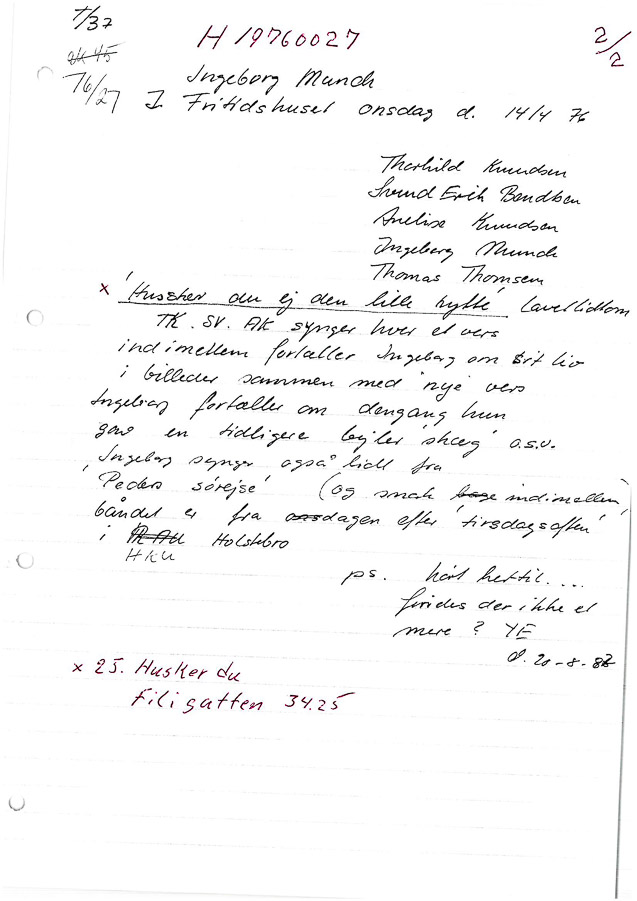 T/37
H 19760027
2/2
76/27
Ingeborg Munch
I Fritidshuset onsdag d. 14/4 76
Thorkild Knudsen
Svend Erik Bendtsen
Anelise Knudsen
Ingeborg Munch
Thomas Thomsen
x 'Huscher du ej den lille hytte'
TK. SV. AK synger hver et vers
indimellem fortæller Ingeborg om sit liv
i billeder sammen med nye vers
Ingeborg fortæller om dengang hun
gav en tidligere bejler 'skæg' o.s.v.
Ingeborg synger også lidt fra
'Peders sørejse' (og snak indimellem)
båndet er fra dagen efter 'tirsdagsaften'
i Holstebro
HKU
ps. hørt hertil....
findes der ikke et
mere ? YE
d. 20-8-
x 25. Husker du
Filigatten 34.25